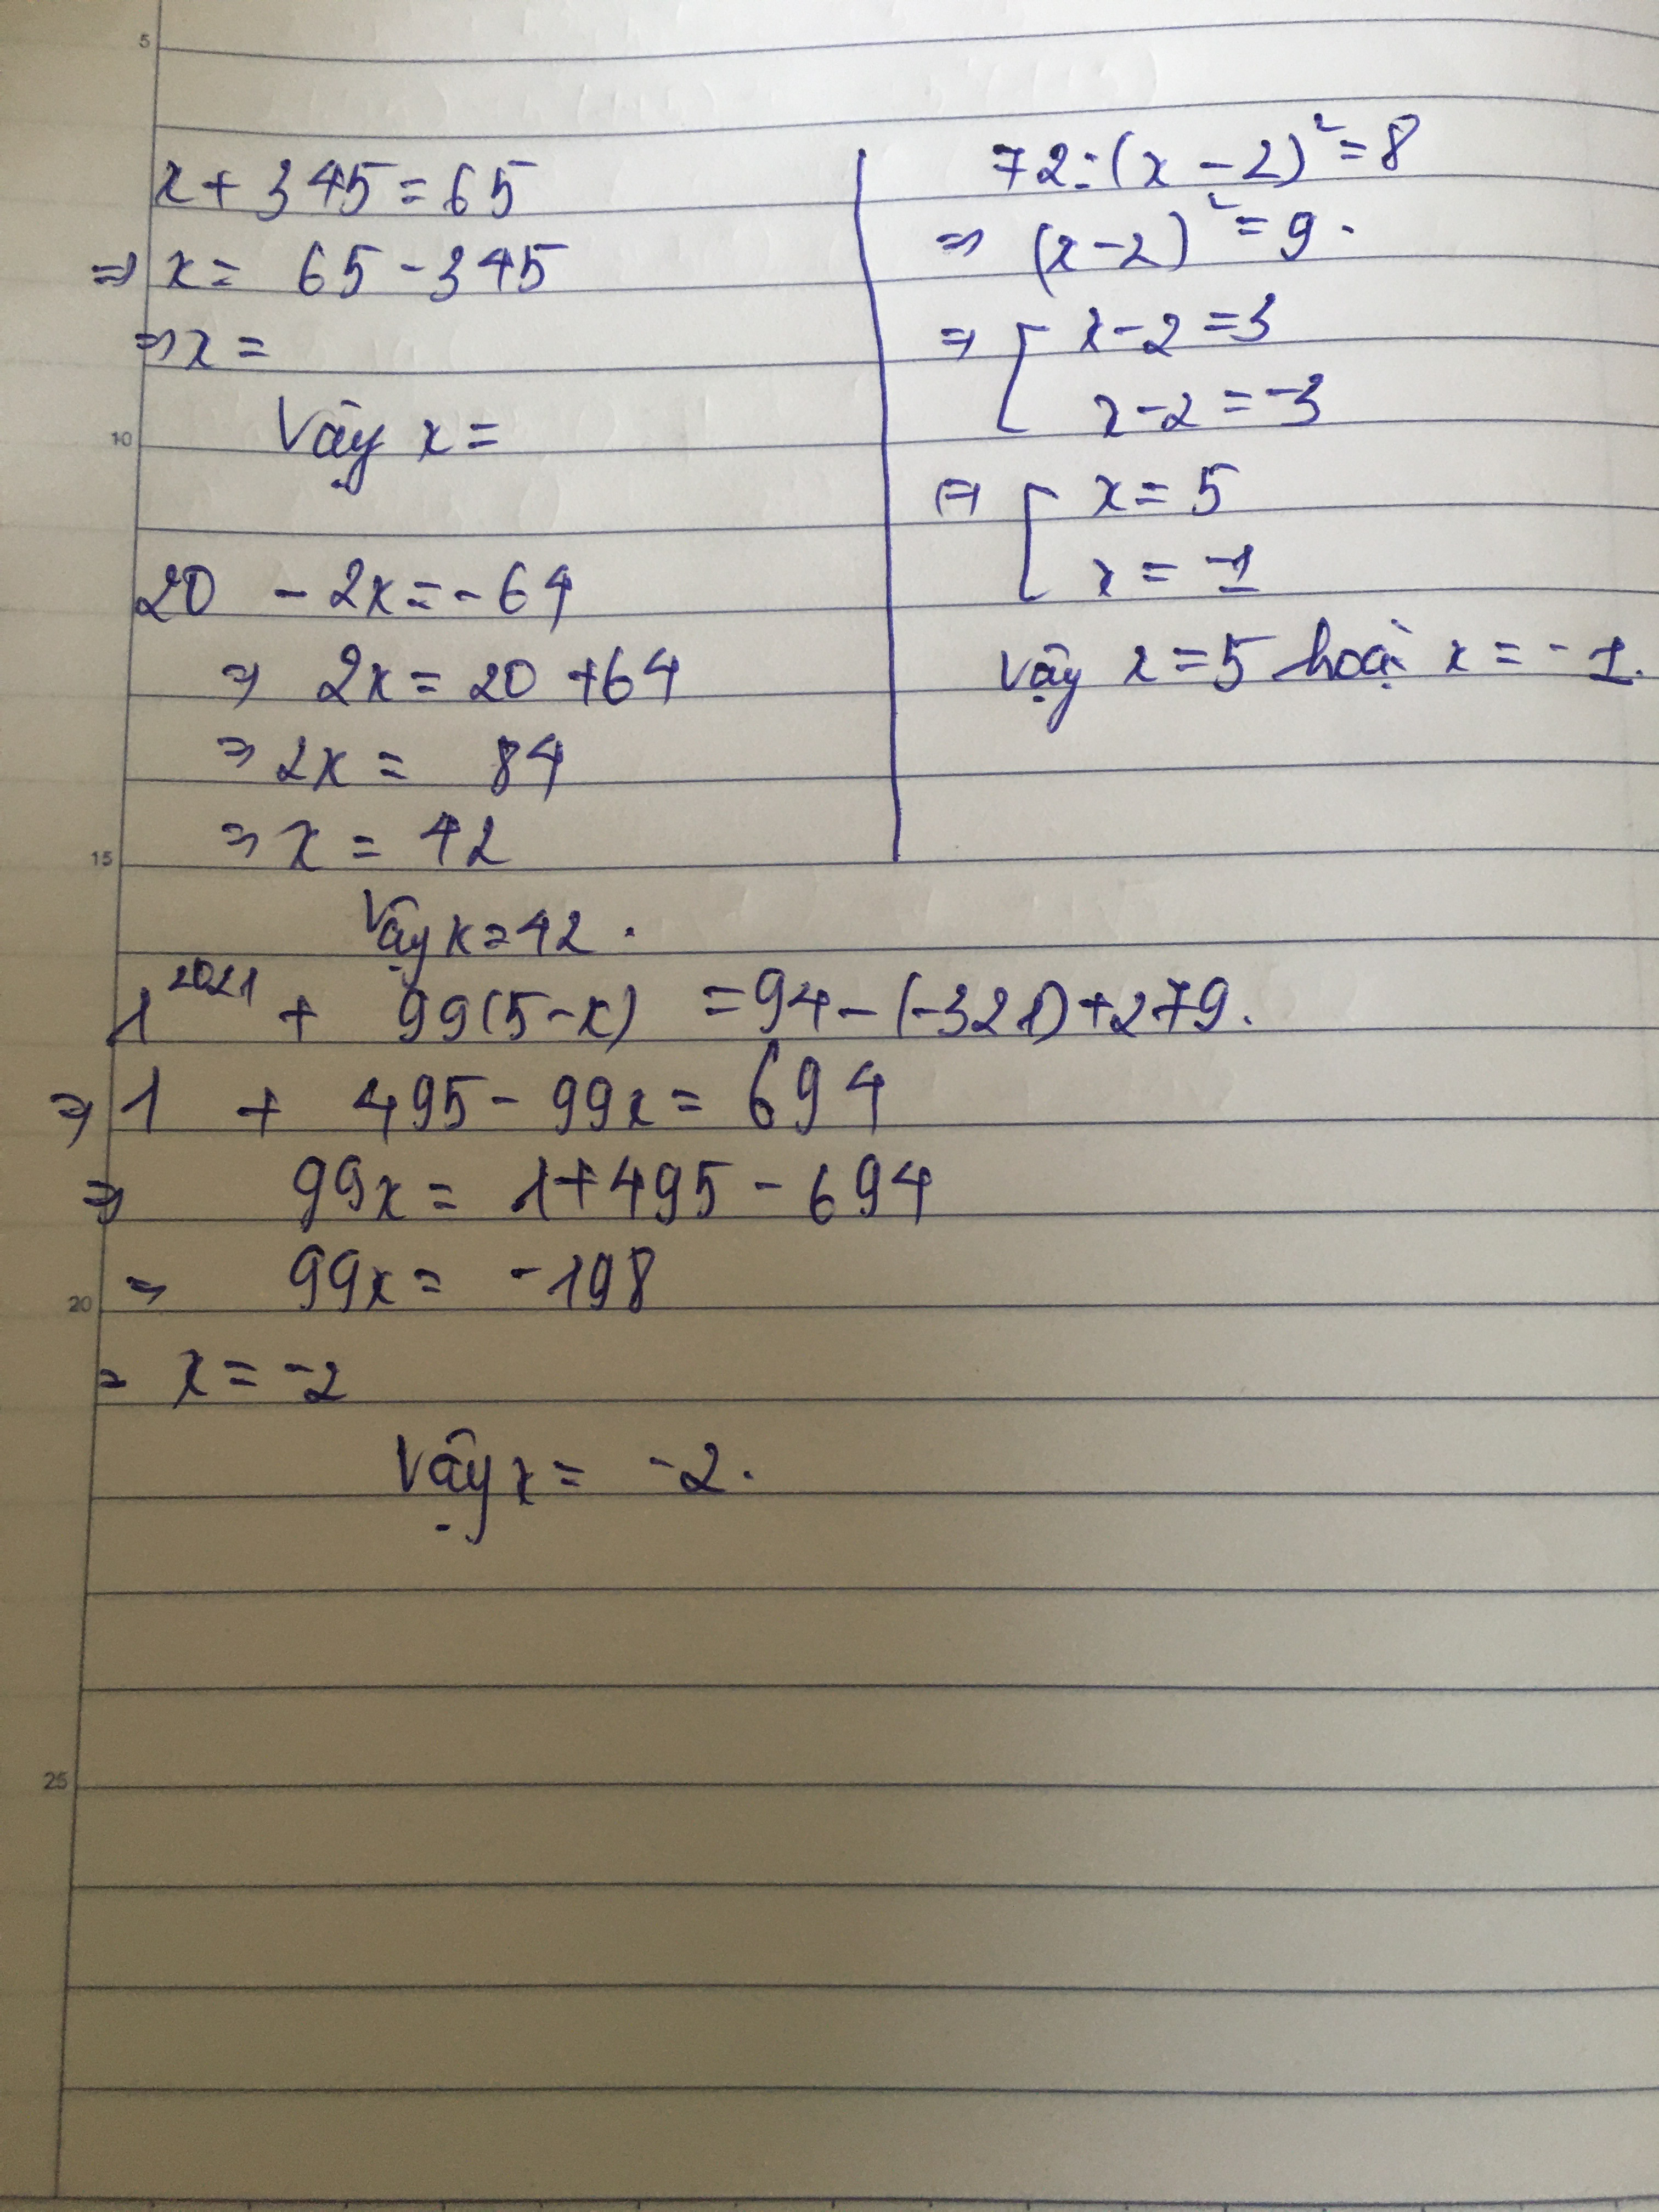 5
x + 345 = 65
⇒ x = 65 - 345
⇒ x =
Vậy x =
10
20 - 2x = - 64
⇒ 2x = 20 + 64
⇒ 2x = 84
⇒ x = 42
15
Vậy x = 42 .
72 : (x - 2)² = 8
⇒ (x - 2)² = 9 .
⇒ [ x - 2 = 3
x - 2 = -3
⇒ [ x = 5
x = -1
Vậy x = 5 hoặc x = - 1.
1²⁰²¹ + 99(5 - x) = 94 - (-321) + 279.
⇒ 1 + 495 - 99x = 694
⇒ 99x = 1 + 495 - 694
⇒ 99x = - 198
20
= x = -2
Vậy x = -2 .
25